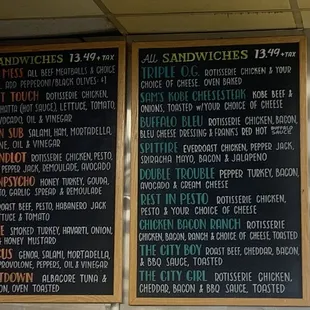 SANDWICHES 13.49 +TAX
MESS ALL BEEF MEATBALLS & CHOICE
ADD PEPPERONI/BLACK OLIVES +1
T TOUCH ROTISSERIE CHICKEN,
(HOT SAUCE), LETTUCE, TOMATO,
AVOCADO, OIL & VINEGAR
N SUB SALAMI, HAM, MORTADELLA,
OIL & VINEGAR
NDLOT ROTISSERIE CHICKEN, PESTO,
PEPPER JACK, REMOULADE, AVOCADO
NPSYCHO HONEY TURKEY, GOUDA,
GARLIC SPREAD & REMOULADE
ROAST BEEF, PESTO, HABANERO JACK
LETTUCE & TOMATO
SMOKED TURKEY, HAVARTI, ONION,
& HONEY MUSTARD
US GENOA, SALAMI, MORTADELLA,
PROVOLONE, PEPPERS, OIL & VINEGAR
TDOWN ALBACORE TUNA &
ON, OVEN TOASTED
ALL SANDWICHES 13.49 +TAX
TRIPLE O.G. ROTISSERIE CHICKEN & YOUR
CHOICE OF CHEESE OVEN BAKED
SAM'S KOBE CHEESESTEAK KOBE BEEF &
ONIONS, TOASTED w/YOUR CHOICE OF CHEESE
BUFFALO BLEU ROTISSERIE CHICKEN, BACON,
BLEU CHEESE DRESSING & FRANK'S RED HOT
SPITFIRE EVERROAST CHICKEN, PEPPER JACK,
SRIRACHA MAYO, BACON & JALAPENO
DOUBLE TROUBLE PEPPER TURKEY, BACON,
AVOCADO & CREAM CHEESE
REST IN PESTO ROTISSERIE CHICKEN,
PESTO & YOUR CHOICE OF CHEESE
CHICKEN BACON RANCH ROTISSERIE
CHICKEN, BACON, RANCH & CHOICE OF CHEESE, TOASTED
THE CITY BOY ROAST BEEF, CHEDDAR, BACON,
& BBQ SAUCE, TOASTED
THE CITY GIRL ROTISSERIE CHICKEN,
CHEDDAR, BACON & BBQ SAUCE, TOASTED